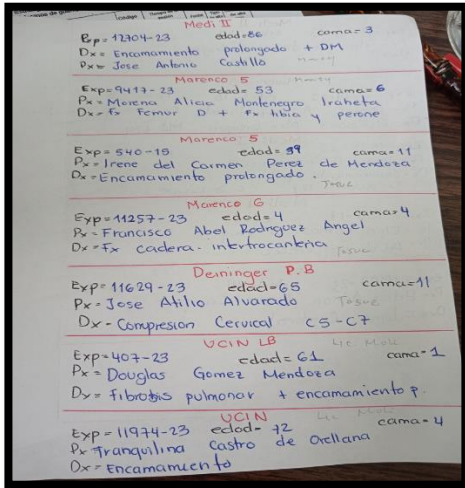 Medi II
Exp = 12704-23 edad=86 cama= 3
Dx = Encamamiento prolongado + DM
Px = Jose Antonio Castillo
Marenco 5
Exp= 9417-23 edad= 53 cama= 6
Px = Morena Alicia Montenegro Iraheta
Dx = fx Femur D + Fx tibia y perone
Marenco 5
Exp = 540-15 edad= 39 cama= 11
Px = Irene del Carmen Perez de Mendoza
Dx = Encamamiento prolongado.
Josue
Marenco 6
Exp = 11257-23 edad= 4 cama= 4
Px = Francisco Abel Rodriguez Angel
Dx = Fx cadera- intertrocanteria
Josue
Deininger P.B
Exp= 11629-23 edad=65 cama=11
Px = Jose Atilio Alvarado Josue
Dx - Compresion Cervical C5-C7
UCIN LB Lic Mole
Exp = 407-23 edad= 61 cama= 1
Px = Douglas Gomez Mendoza
Dx = Fibrobis pulmonar + encamamiento p.
UCIN Lic Mole
Exp = 11974-23 edad= 72 cama= 4
Px = Tranquilina Castro de Orellana
Dx = Encamamiento